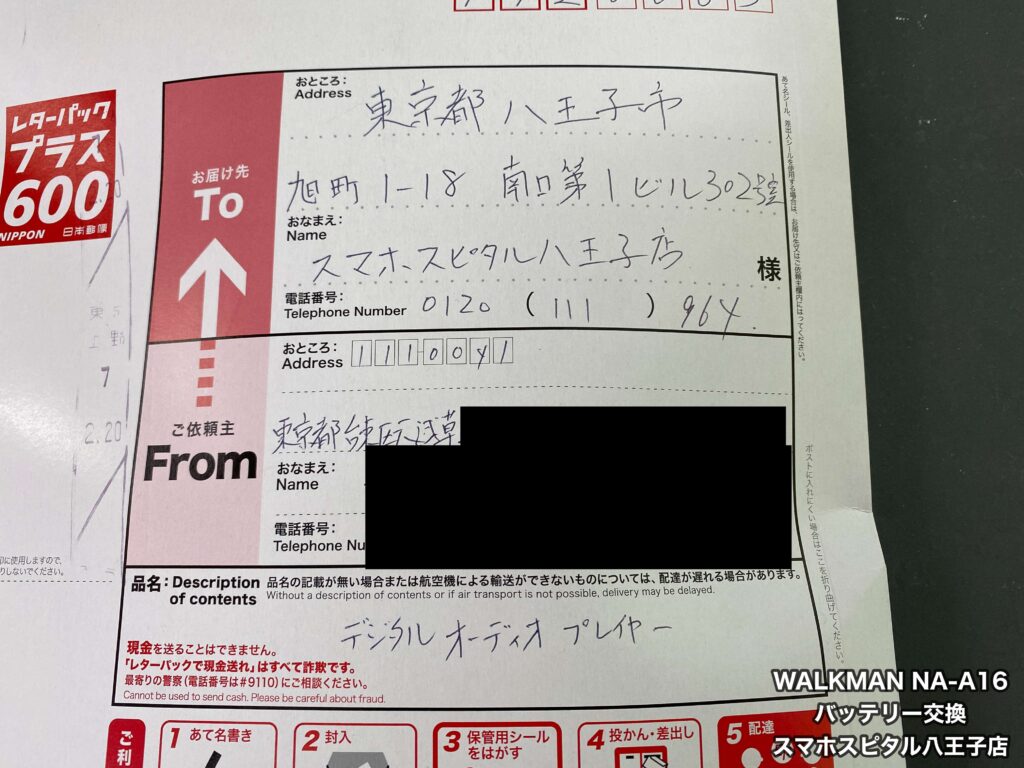 おところ：
Address
東京都 八王子市
旭町1-18 南口第1ビル302号室
おなまえ：
Name
スマホスピタル八王子店
様
電話番号：
Telephone Number
0120 ( 111 ) 964
お届け先
To
レターパック
プラス
600
NIPPON 日本郵便
おところ：
Address
1110041
東京都台東区元浅草
ご依頼主
From
おなまえ：
Name
電話番号：
Telephone Nu
上野
7
2.20
品名：Description of contents
品名の記載が無い場合または航空機による輸送ができないものについては、配達が遅れる場合があります。
Without a description of contents or if air transport is not possible, delivery may be delayed.
デジタル オーディオ プレイヤー
現金を送ることはできません。
「レターパックで現金送れ」はすべて詐欺です。
最寄りの警察（電話番号は#9110）にご相談ください。
Cannot be used to send cash. Please be careful about fraud.
あて名シール、差出人シールを使用する場合は、お届け先又はご依頼主欄内にはってください。
ポストに入れにくい場合はここを折り曲げてください。
印に使用しますので、
りしないでください。
ご利
1 あて名書き
2 封入
3 保管用シールをはがす
4 投かん・差出し
5 配達
WALKMAN NA-A16
バッテリー交換
スマホスピタル八王子店